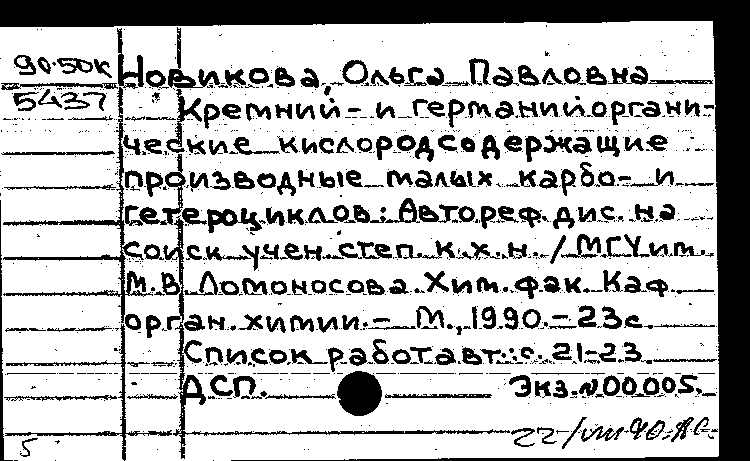 90-50к
5437
Новикова, Ольга Павловна
Кремний- и германийоргани-
ческие кислородсодержащие
производные малых карбо- и
гетероциклов: Автореф. дис. на
соиск учен. степ. к.х.н. / МГУ им.
М.В. Ломоносова. Хим. фак. Каф.
орган. химии. - М., 1990. - 23с.
Список работ авт.: с. 21-23.
ДСП. Экз. N00005.
22/VIII-90.
5